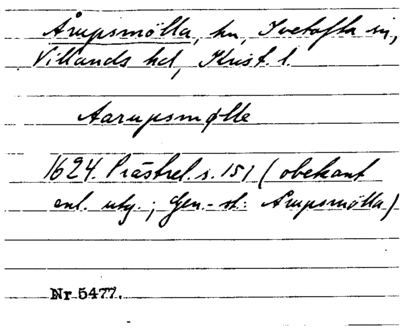 Årupsmölla, hn, Ivetofta sn,
Villands hd, Krist. l.
Aarupsmølle
1624. Prästrel. s. 151 (obekant
enl. utg.; Gen.-st: Årupsmölla)
Nr 5477.